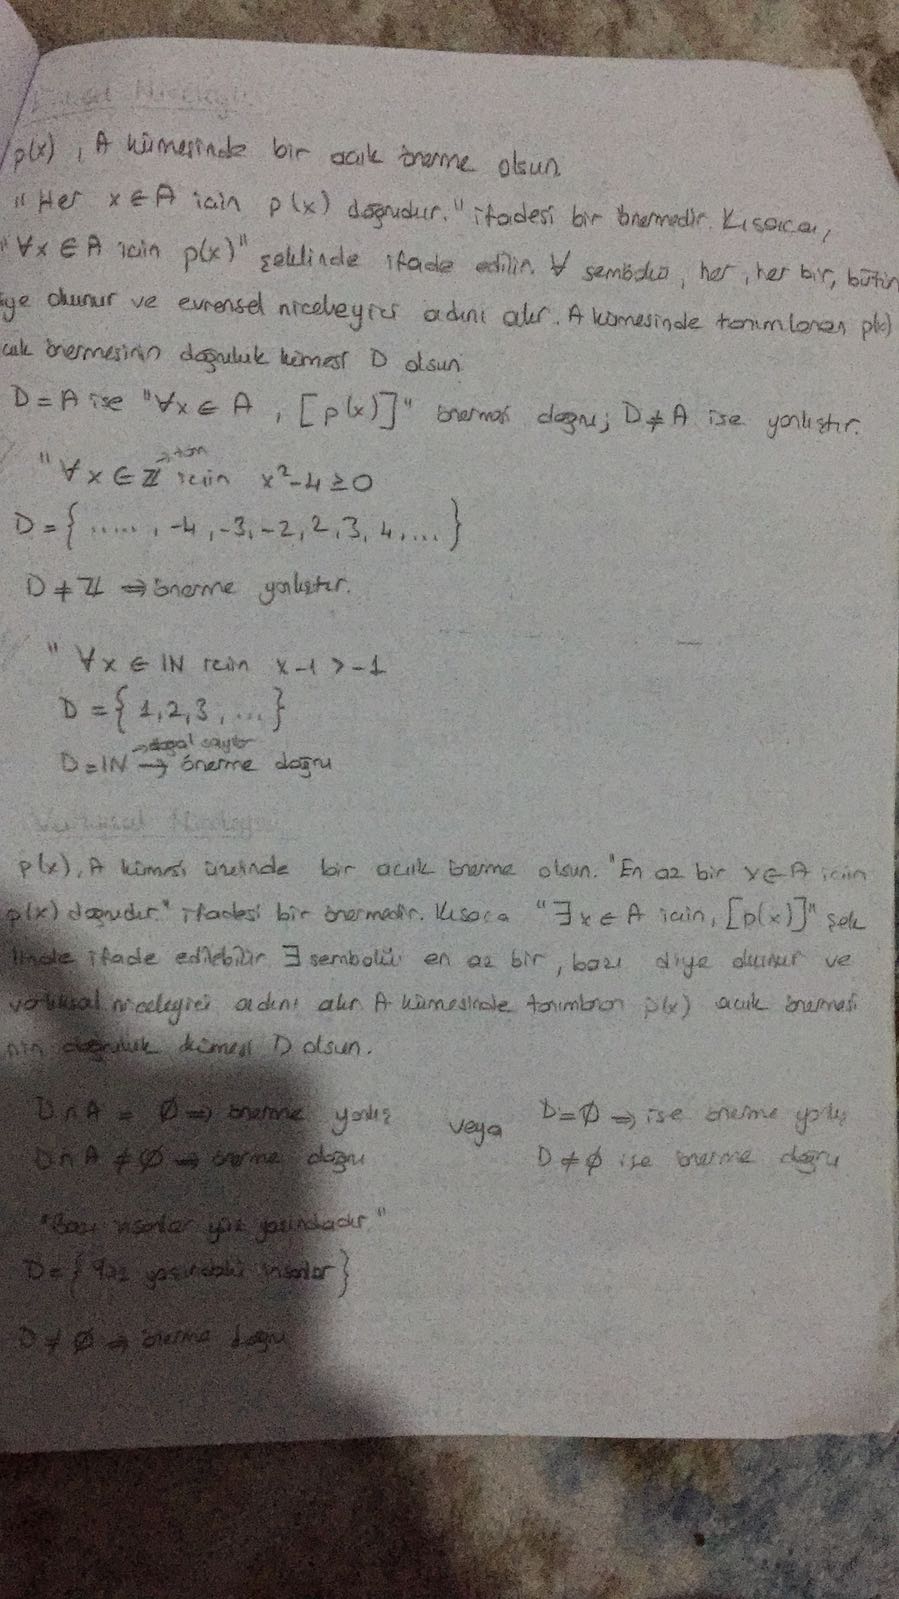 Evrensel Niceleyici
p(x), A kümesinde bir açık önerme olsun.
"Her x ∈ A için p(x) doğrudur." ifadesi bir önermedir. Kısaca,
"∀x ∈ A için p(x)" şeklinde ifade edilir. ∀ sembolü, her, her bir, bütün
iye okunur ve evrensel niceleyici adını alır. A kümesinde tanımlanan p(x)
çık önermesinin doğruluk kümesi D olsun.
D = A ise "∀x ∈ A, [p(x)]" önermesi doğru; D ≠ A ise yanlıştır.
"∀x ∈ Z için x²-4 ≥ 0
→ tam
D = {....., -4, -3, -2, 2, 3, 4, ...}
D ≠ Z ⇒ önerme yanlıştır.
"∀x ∈ IN için x-1 > -1
D = {1, 2, 3, ...}
→ doğal sayılar
D = IN → önerme doğru
Varlıksal Niceleyici
p(x), A kümesi üzerinde bir açık önerme olsun. "En az bir x ∈ A için
p(x) doğrudur." ifadesi bir önermedir. Kısaca "∃x ∈ A için, [p(x)]" şek
linde ifade edilebilir. ∃ sembolü en az bir, bazı diye okunur ve
varlıksal niceleyici adını alır. A kümesinde tanımlanan p(x) açık önermesi
nin doğruluk kümesi D olsun.
D ∩ A = Ø ⇒ önerme yanlış veya D = Ø ⇒ ise önerme yanlış
D ∩ A ≠ Ø ⇒ önerme doğru D ≠ Ø ise önerme doğru
"Bazı insanlar yüz yaşındadır."
D = {yüz yaşındaki insanlar}
D ≠ Ø ⇒ önerme doğru